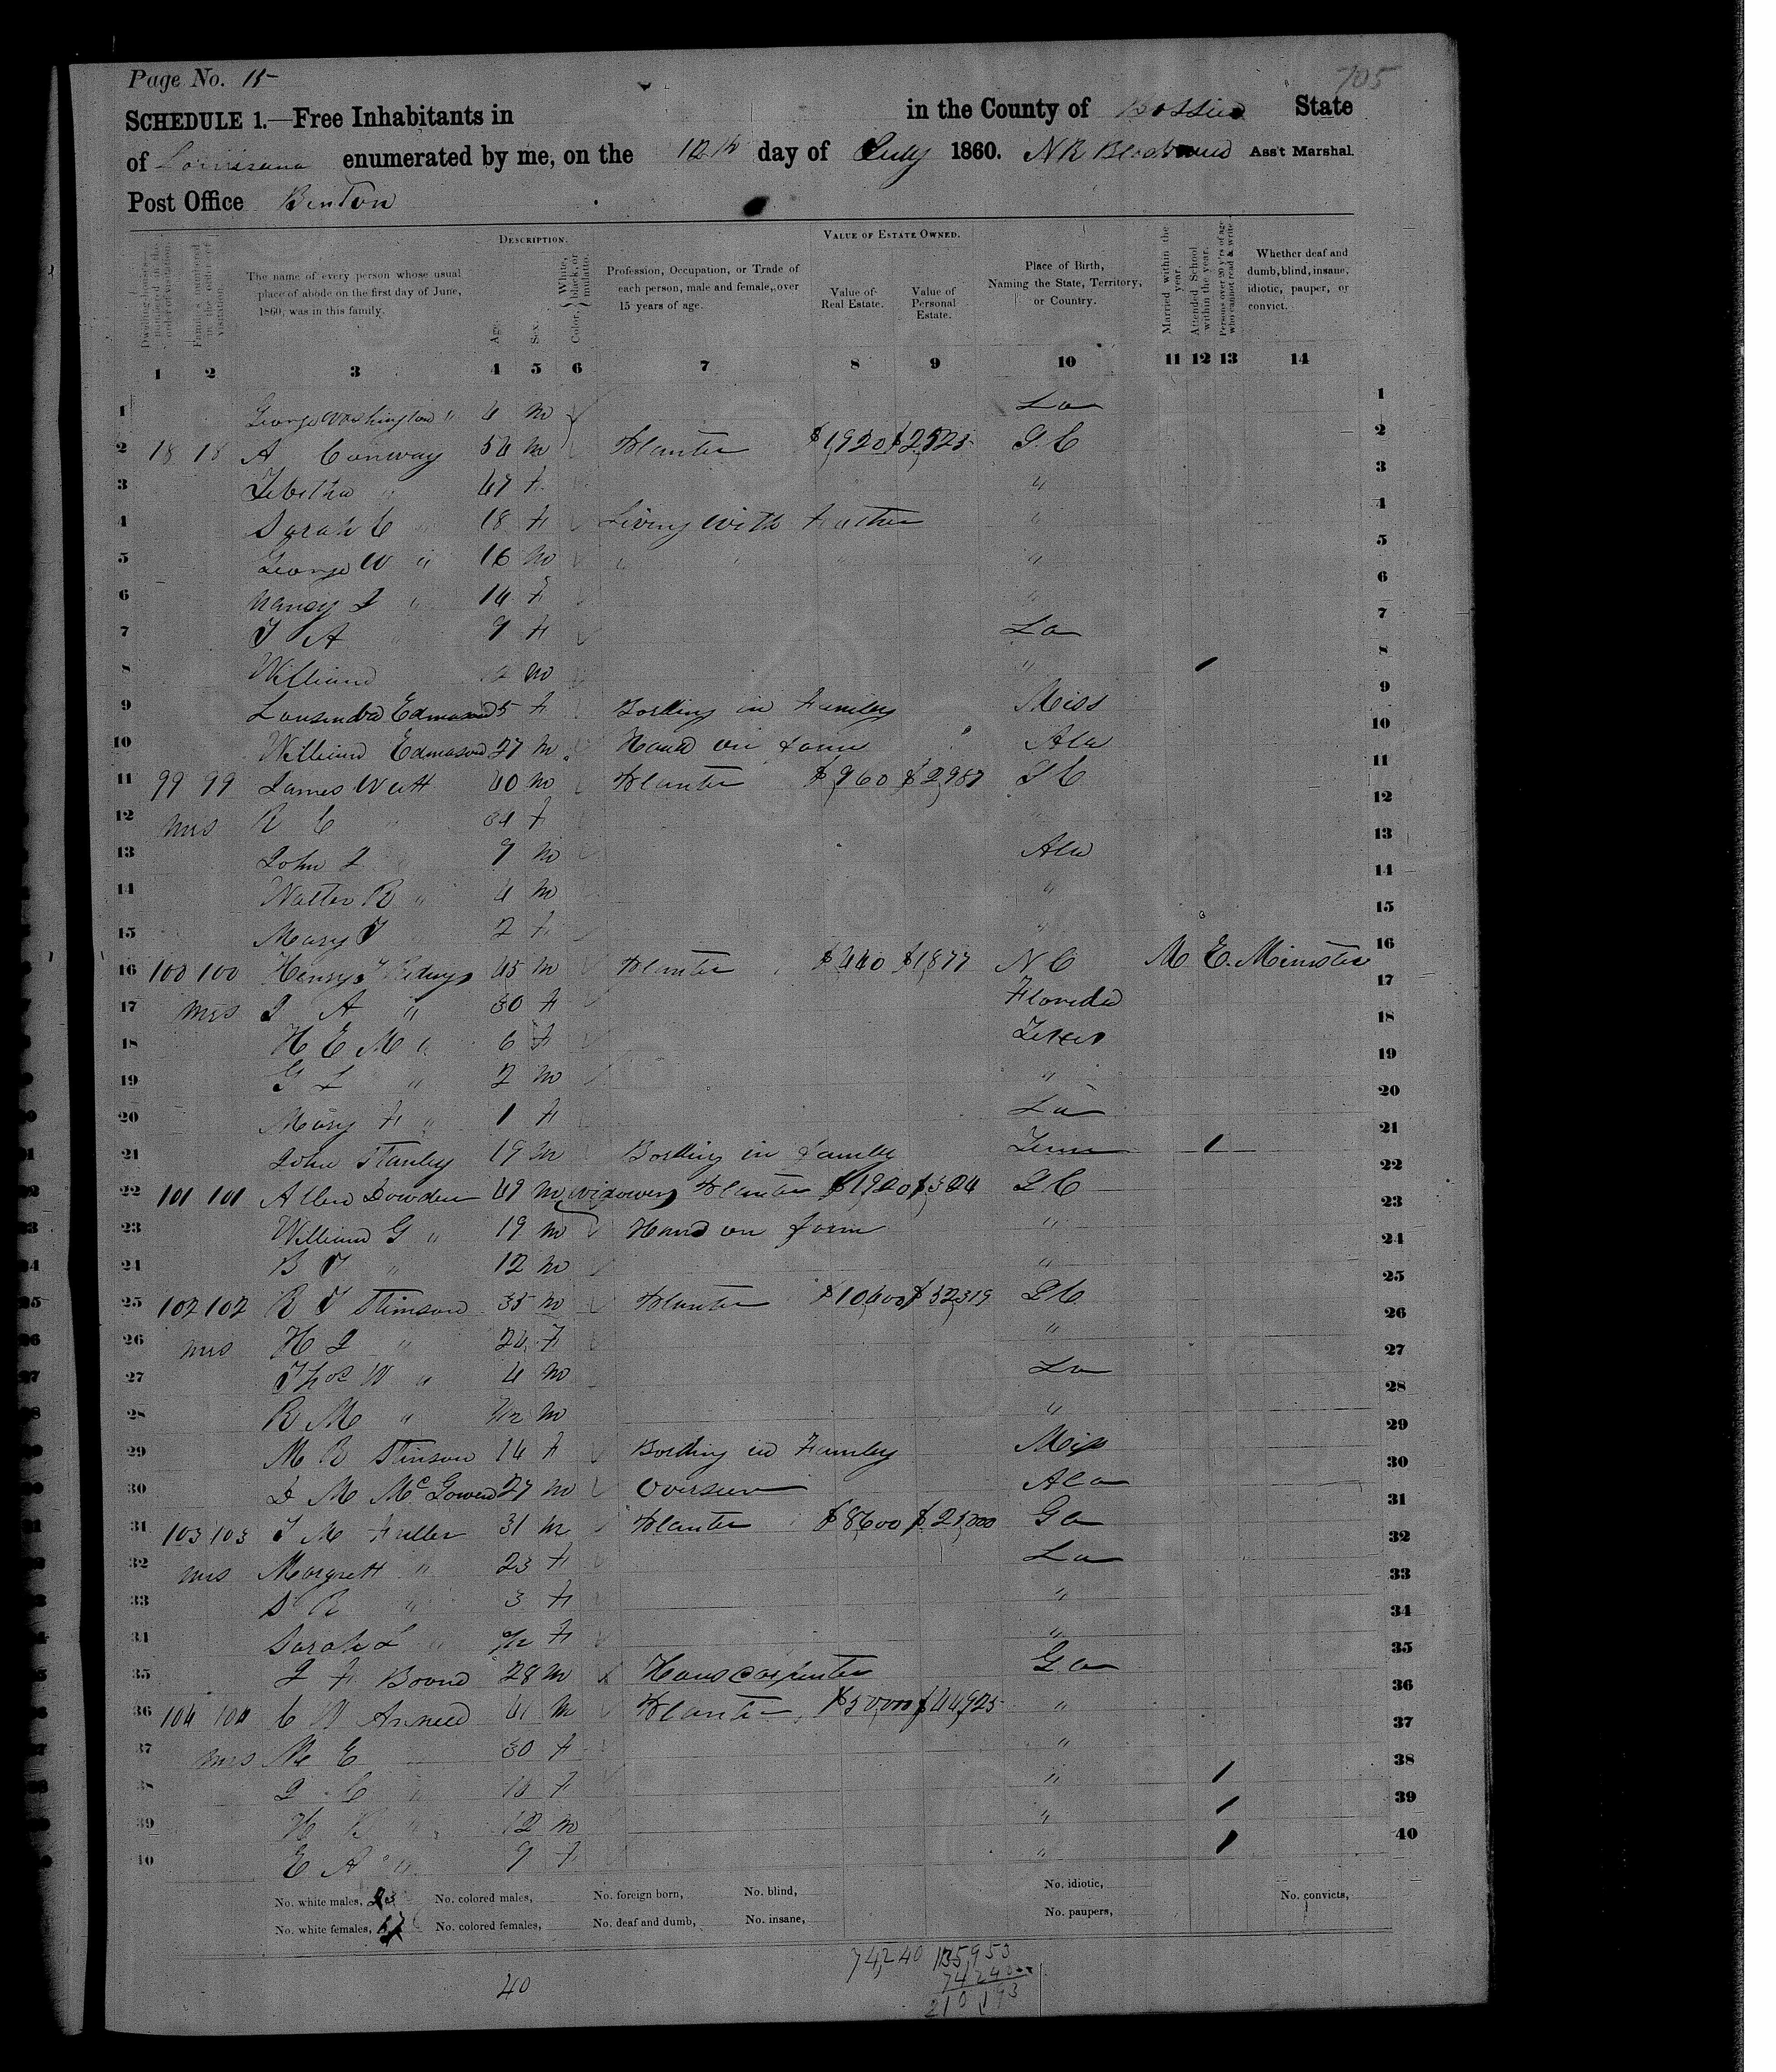 Page No. 15
705
SCHEDULE 1.—Free Inhabitants in in the County of Bossier State
of Louisiana enumerated by me, on the 12th day of July 1860. N R Ass't Marshal.
Post Office Benton
DESCRIPTION. VALUE OF ESTATE OWNED.
Dwelling-houses numbered in the order of visitation.
Families numbered in the order of visitation.
The name of every person whose usual place of abode on the first day of June, 1860, was in this family.
Age.
Sex.
Color, White, black, or mulatto.
Profession, Occupation, or Trade of each person, male and female, over 15 years of age.
Value of Real Estate.
Value of Personal Estate.
Place of Birth, Naming the State, Territory, or Country.
Married within the year.
Attended School within the year.
Persons over 20 y'rs of age who cannot read & write.
Whether deaf and dumb, blind, insane, idiotic, pauper, or convict.
1 2 3 4 5 6 7 8 9 10 11 12 13 14
1 George Washington " 4 m La 1
2 18 18 A Conway 54 m Planter $1,920 S.C 2
3 " 47 f " 3
4 Sarah C " 18 f Living With Father " 4
5 George W " 16 m " " " " 5
6 Nancy J " 14 f " 6
7 A " 9 f La 7
8 William m " 1 8
9 Edmason f in Family Miss 9
10 William Edmason 27 m Hand on farm Ala 10
11 99 99 James 40 m Planter $960 $2,987 S C 11
12 mrs R C " 34 f " 12
13 John J " 9 m Ala 13
14 Walter R " 4 m " 14
15 Mary " 2 f " 15
16 100 100 Henry 45 m Planter $440 $1,877 N C M E. Minister 16
17 mrs J A " 30 f Florida 17
18 H E M " 6 f 18
19 G L " 2 m " 19
20 Mary F " 1 f La 20
21 John Stanley 19 m Bording in family Tenn 1 21
22 101 101 Allen Dowden 49 m Widower Planter $1,920 S C 22
23 William G " 19 m Hand on farm " 23
24 B T " 12 m " 24
25 102 102 R T Stinson 35 m Planter $10,600 $52,319 S C. 25
26 mrs H J " 24 f " 26
27 Thos W " 4 m La 27
28 R M " m " 28
29 M R Stinson 14 f Bording in Family Miss 29
30 D M McGowen 27 m Overseer Ala 30
31 103 103 T M Fuller 31 m Planter $8600 $25,000 Ga 31
32 mrs Margrett " 23 f La 32
33 S R " 3 f " 33
34 Sarah L " f " 34
35 J F Boond 28 m Hous carpenter Ga 35
36 104 104 C W 41 m Planter $50,000 $44,925 " 36
37 mrs M E 30 f " 37
38 J C " f " 1 38
39 H R " 12 m " 1 39
40 E A " 9 f " 1 40
No. white males, 23 No. colored males, No. foreign born, No. blind, No. idiotic, No. convicts,
No. white females, 17 No. colored females, No. deaf and dumb, No. insane, No. paupers,
74,240 135,953
74240
40 210,193